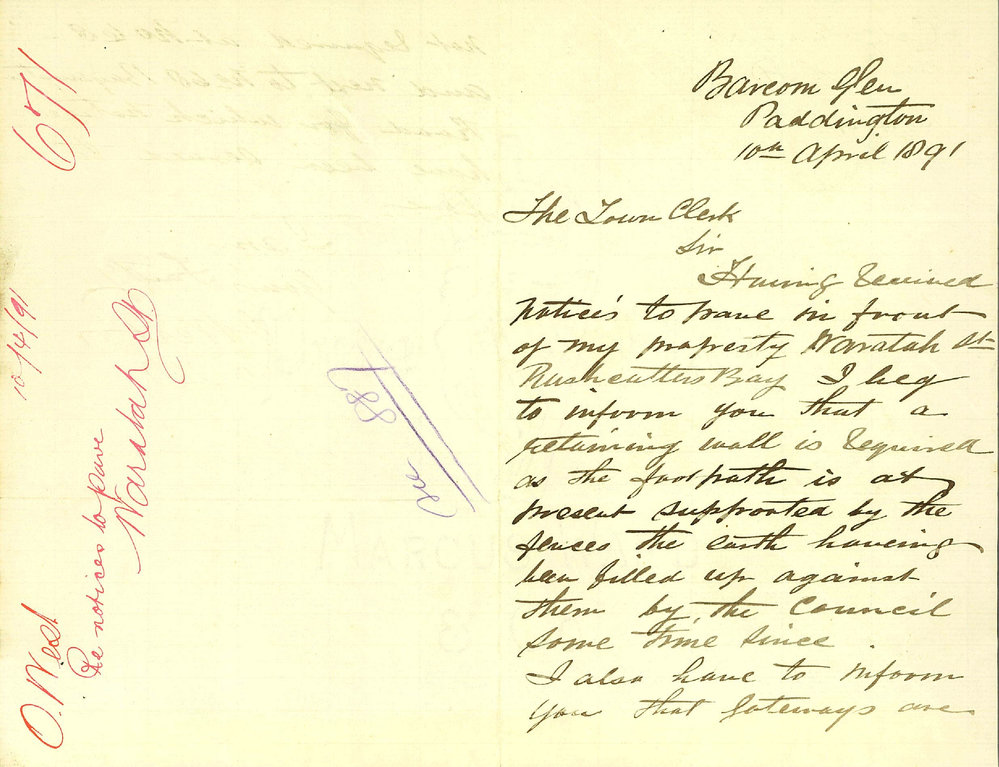 671
10/4/91
O. West
Re notices to pave
Waratah St
887
Barcom Glen
Paddington
10th April 1891
The Town Clerk
Sir
Having received
notices to pave in front
of my property Waratah St
Rushcutters Bay I beg
to inform you that a
retaining wall is required
as the footpath is at
present supported by the
fences the earth having
been filled up against
them by the Council
some time since
I also have to inform
you that gateways are